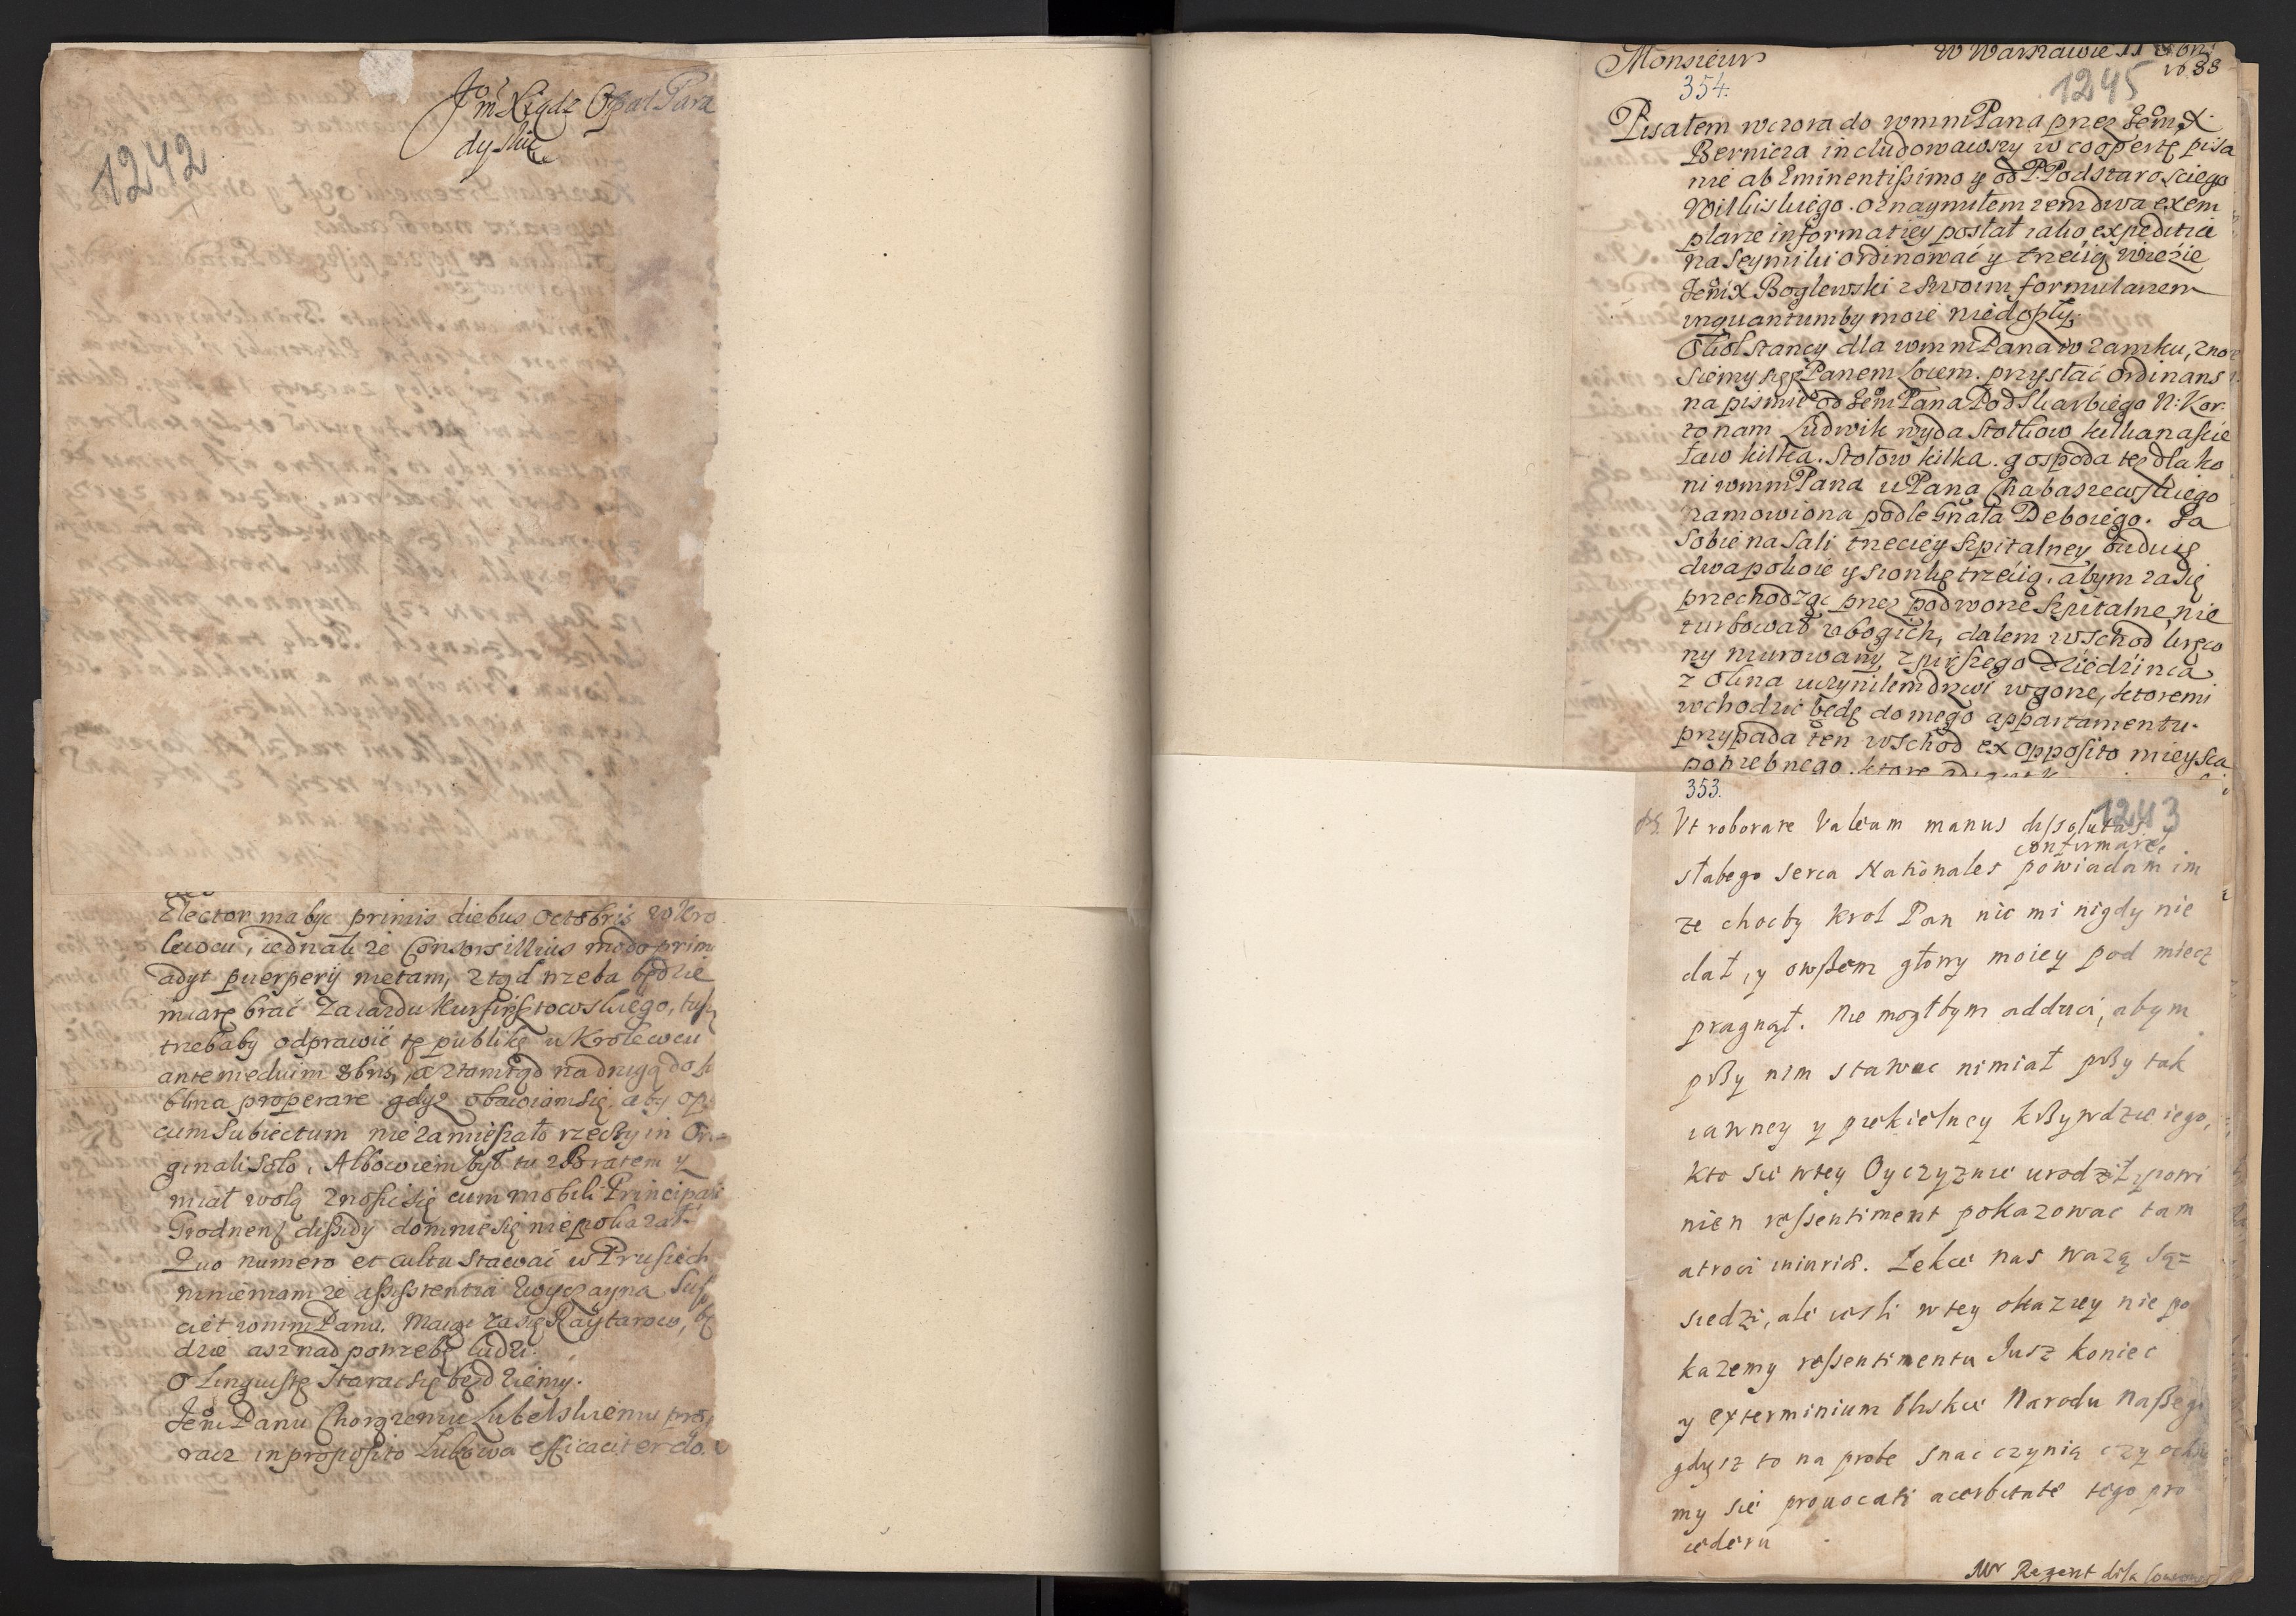 Jom Xiądz Opat Para
dyski
1242
Elector ma byc primis diebus Octobris w Kro
lewcu, iednak ze Consors illius modo prim
adyt puerperij metam, ztąd trzeba będzie
miarę brać zaiazdu
trzebaby odprawić tę publikę u Krolewcu
ante medium 8bris, a ztamtąd na drugą do
blina properare gdyz obawiam się, aby op
cum Subiectum nie zamieszało rzeczy in Ori
ginali solo. Albowiem był tu z Bratem y
miał wolą znosić się cum mobili Principali
Grodnens do mnie się nie pokazał.
Quo numero et cultu stawać w Prusiech
mniemam ze assistentia zwyczayna Suf
ciet wmm Panu. Maiąc zasię Raytarow, bę
dzie asz nad potrzebę ludzi.
O Linguistę starać się będziemy.
Jem Panu Chorązemu Lubelskiemu pro
racz in proposito Lukowa efficaciter do
Monsieur
W Warszawie 11
1688
354.
1245
Pisałem wczora do wmm Pana przez Jem X
Bernicza includowawszy w coopertę pisa
nie ab Eminentissimo y od P. Podstarosciego
Wilkiskiego. oznaymiłem zem dwa exem
plarze informatiey posłał iako expeditie
na Seymiki ordinować y trzecią wiezie
Jem X Boglewski z swoim formularzem
inquantum by moie nie doszły.
Okoł stancy dla wmm Pana w zamku, zno
siemy się z Panem Łoiem. przysłać ordinans
na pismie od Jem Pana Podskarbiego N: Kor:
to nam Ludwik wyda Stołkow kilkanascie
Ław kilka. Stołow kilka. gospoda tez dla ko
ni wmm Pana u Pana Chabaszewskiego
namowiona podle Gnata Deboiego. Ja
sobie na Sali trzeciey Szpitalney buduię
dwa pokoie y sionkę trzecią. abym zasię
przechodząc przez podworze Szpitalne, nie
turbował ubogich, dałem wschod kręco
ny murowany, z pirszego Dziedzinca
z okna uczyniłem drzwi w gorze, ktoremi
wchodzić będę do mego appartamentu.
przypada ten wschod ex opposito mieysca
potrzebnego. ktore
353.
1243
Ps. Vt roborare Valeam manus dissolutas y
confirmare
słabego serca Nationales powiadam im
ze choćby Krol Pan nic mi nigdy nie
dał, y owszem głowy moiey pod miecz
pragnął. Nie mogłbym adduci, abym
przy nim stawac ni miał przy tak
iawney y piekielney krzywdzie iego,
kto się w tey Oyczyznie urodził powi
nien ressentiment pokazowac tam
atroci iniuriae. Lekce nas wazą Są=
siedzi, ale iesli w tey okazyey nie po
kazemy ressentimentu Jusz koniec
y exterminium bliskie Narodu naszego
gdysz to na probe snac czynią czy
my się prouocati acerbitate tego pro
cederu
Mr Regent